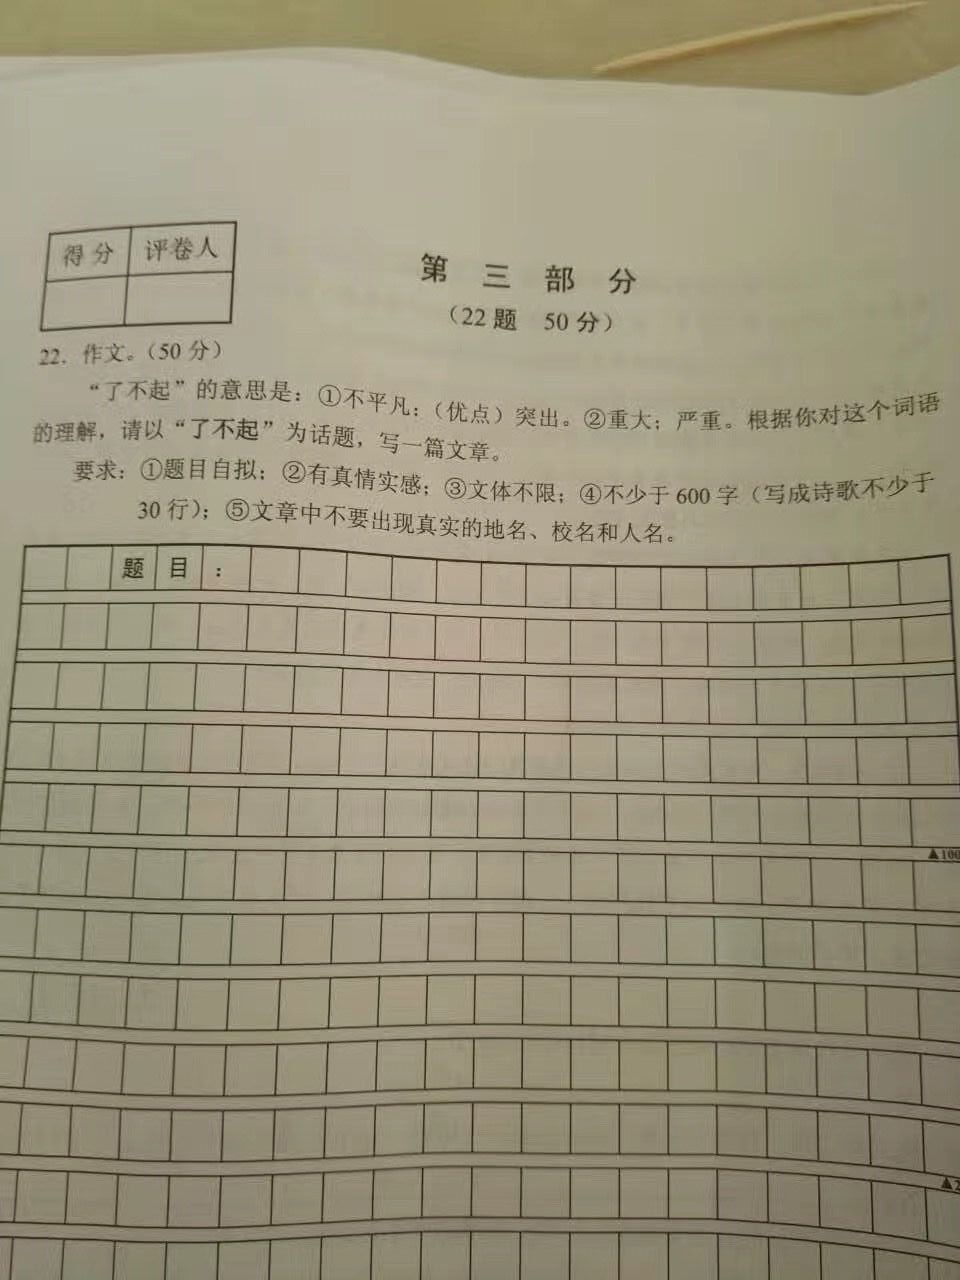 得分 评卷人
第三部分
（22题 50分）
22．作文。（50分）
“了不起”的意思是：①不平凡；（优点）突出。②重大；严重。根据你对这个词语
的理解，请以“了不起”为话题，写一篇文章。
要求：①题目自拟；②有真情实感；③文体不限；④不少于600字（写成诗歌不少于
30行）；⑤文章中不要出现真实的地名、校名和人名。
题目：
▲100
▲2